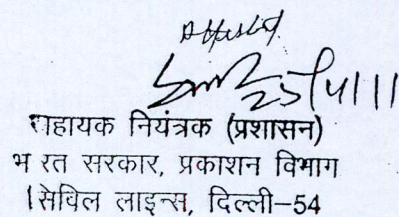 Attested
25/4/11
सहायक नियंत्रक (प्रशासन)
भ रत सरकार, प्रकाशन विभाग
सिविल लाइन्स, दिल्ली-54